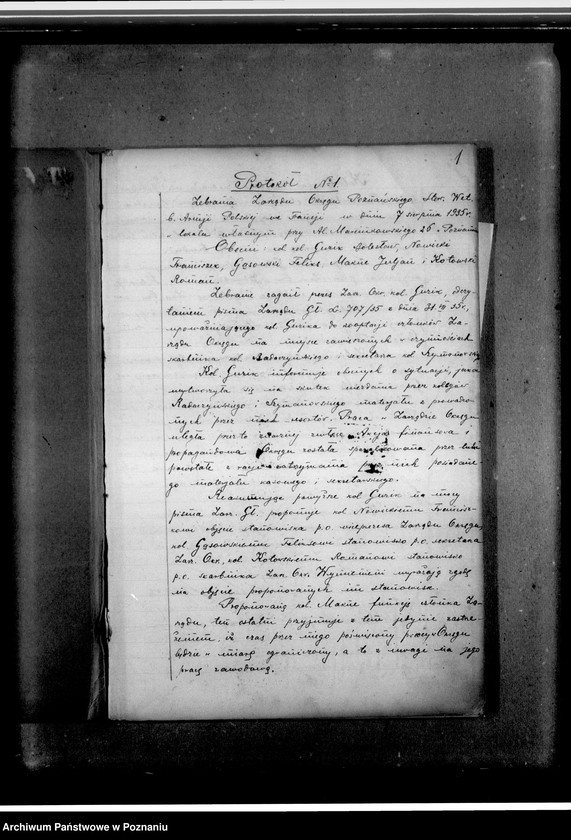 1
Protokół №1
Zebrania Zarządu Okręgu Poznańskiego Stow. Wet.
b. Armji Polskiej we Francji w dniu 7 sierpnia 1935 r.
w lokalu własnym przy Al. Marcinkowskiego 26 w Poznaniu
Obecni: kol. kol. Gurik Nowicki
Franciszek, Gąsowski Feliks, Julian i Kotowski
Roman.
Zebranie zagaił prezes Zarz. Okr. kol. Gurik, odczy-
taniem pisma Zarządu Gł. L. 707/35 z dnia 31. 35 r.,
upoważniającego kol. Gurika do członków Za-
rządu Okręgu na miejsce zawieszonych w czynnościach
skarbnika kol. Radurzyńskiego i sekretarza kol. Szymanowskiego
Kol. Gurik informuje obecnych o sytuacji, jaka
wytworzyła się na skutek przez kolegów
Radurzyńskiego i Szymanowskiego materjału z prowadzo-
nych przez nich resortów. Praca w Zarządzie Okręgu
uległa przeto znacznej zwłoce. Akcja finansowa i
propagandowa Okręgu została przez luki
powstałe z racji zatrzymania przez nich posiadane-
go materjału kasowego i sekretarskiego.
Reasumując powyższe kol. Gurik na mocy
pisma Zarz. Gł. proponuje kol. Nowickiemu Francisz-
kowi objęcie stanowiska p.o. wiceprezesa Zarządu Okręgu,
kol. Gąsowskiemu Feliksowi stanowisko p.o. sekretarza
Zarz. Okr., kol. Kotowskiemu Romanowi stanowisko
p.o. skarbnika Zarz. Okr. Wymienieni wyrażają zgodę
na objęcie proponowanych im stanowisk.
Proponowaną kol. funkcję członka Za-
rządu, ten ostatni przyjmuje z tem jedynie zastrze-
żeniem, iż czas przez niego poświęcony pracy w Okręgu
będzie w miarę ograniczony, a to z uwagi na jego
pracę zawodową.
Archiwum Państwowe w Poznaniu